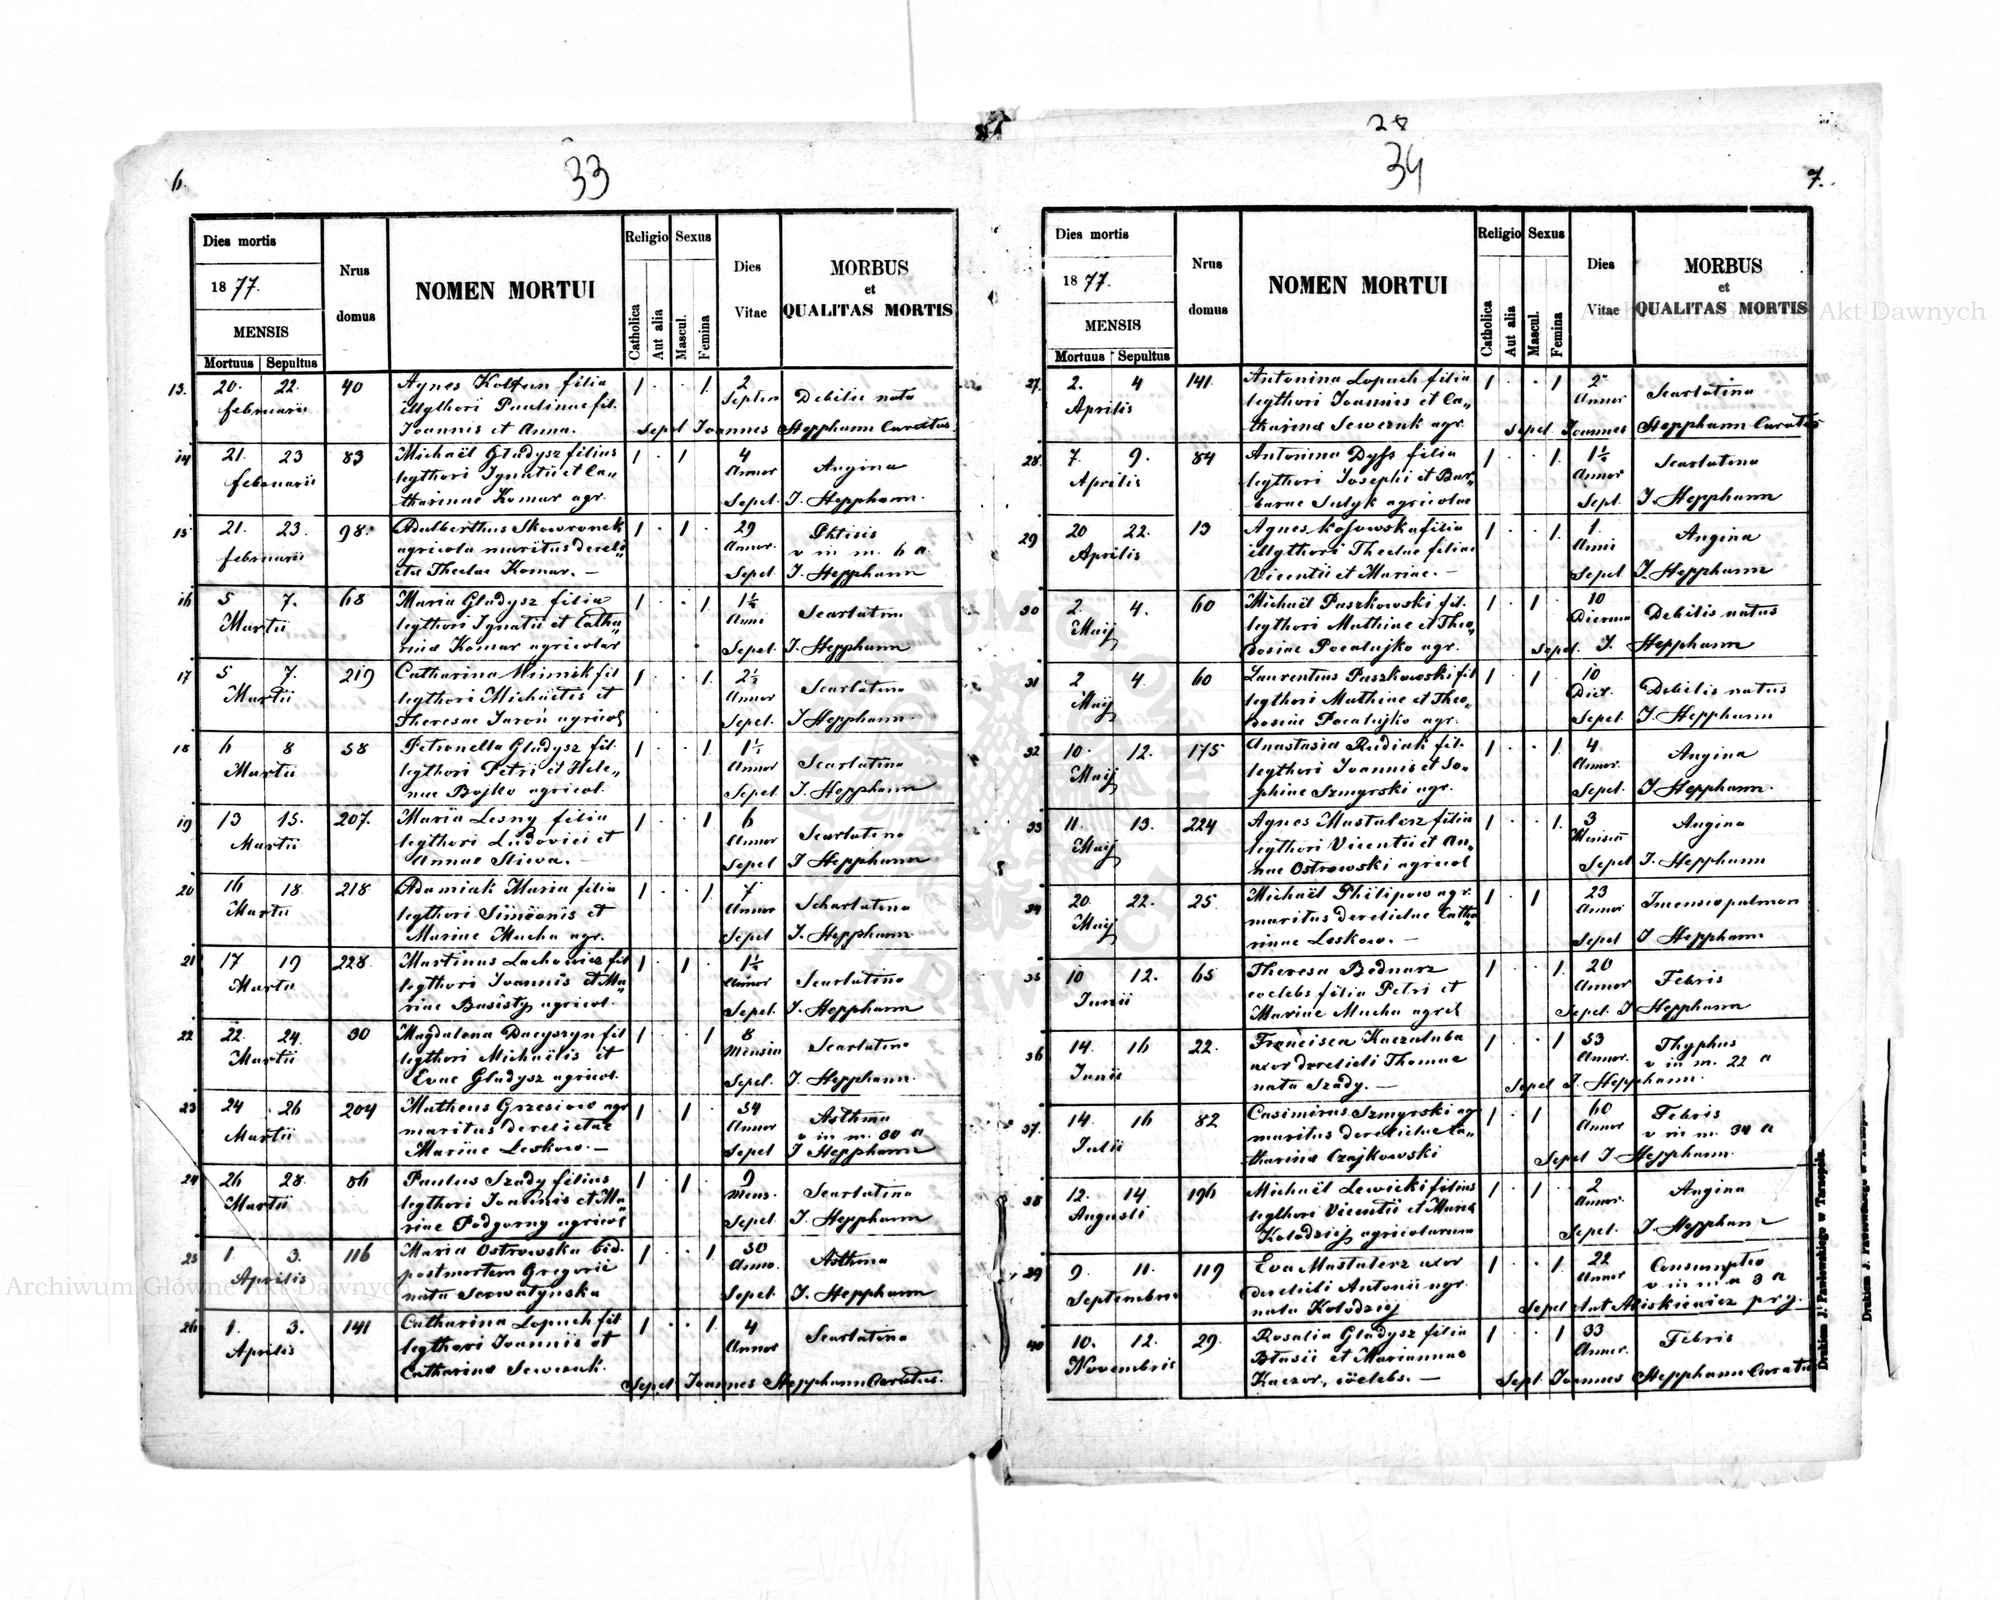 6.
33
Dies mortis
1877.
MENSIS
Mortuus Sepultus
Nrus domus
NOMEN MORTUI
Religio
Catholica
Aut alia
Sexus
Mascul.
Femina
Dies Vitae
MORBUS
et
QUALITAS MORTIS
13. 20. 22. 40 Agnes Koltun filia 1 · · 1 2
februarii illgthori Paulinae fil. Septim Debilis nata
Joannis et Anna. Sepel Joannes Hepphann Curatus.
14 21. 23 83 Michaël Gladysz filius 1 · 1 · 4
februarii legthori Ignatii et Ca„ Annor Angina
tharinae Komar agr. Sepel. J. Hepphann.
15 21. 23. 98. Adalberthus Skowronek 1 · 1 · 29 Phtisis
februarii agricola maritus dereli„ Annor. v in m. 6 a.
ctae Theclae Komar. — Sepel J. Hepphann
16 5 7. 68 Maria Gladysz filia 1 · · 1 1½
Martii legthori Ignatii et Catha„ Anni Scarlatina
rina Komar agricolar Sepel. J. Hepphann
17 5 7. 219 Catharina Mrimik fil 1 · · 1 2½
Martii legthori Michaelis et Annor Scarlatina
Theresae Jaroń agricol Sepel. J Hepphann.
18 6 8 58 Petronella Gladysz fil. 1 · · 1 1½
Martii legthori Petri et Hele„ Annor Scarlatina
nae Bojko agricol. Sepel J. Hepphann
19 13 15. 207. Maria Lesny filia 1 · · 1 6
Martii legthori Ludovici et Annor Scarlatina
Annae Sliwa. — Sepel J Hepphann
20 16 18. 218 Adamiak Maria filia 1 · · 1 7
Martii legthori Simëonis et Annor Scharlatina
Mariae Mucha agr. Sepel J. Hepphann
21 17 19 228 Martinus Lachowicz fil 1 · 1 · 1½
Martii legthori Joannis et Ma„ Annor Scarlatina
riae Basisty agricol. Sepel J. Hepphann
22 22. 24. 30 Magdalena Dacyszyn fil 1 · · 1 8
Martii legthori Michaëlis et Mensiu Scarlatina
Evae Gladysz agricol. Sepel. J. Hepphann.
23 24 26 204 Matheus Grzesiow agr 1 · 1 · 54 Asthma
Martii maritus derelictae Annor v in m. 30 a
Mariae Leskow. — Sepel J Hepphann
24 26 28. 86 Paulus Szady filius 1 · 1 · 9
Martii legthori Joannis et Ma„ Mens. Scarlatina
riae Podgorny agricol Sepel. J. Hepphann
25 1. 3. 116 Maria Ostrowska vid. 1 · · 1 50
Aprilis postmortem Gregorii Anno. Asthma
nata Serwatynska Sepel. J. Hepphann
26 1. 3. 141 Catharina Lopuch fil 1 · · 1 4
Aprilis legthori Joannis et Annor Scarlatina
Catharina Sewczuk. Sepel Joannes Hepphann Curatus.
28
34
7.
Dies mortis
1877.
MENSIS
Mortuus Sepultus
Nrus domus
NOMEN MORTUI
Religio
Catholica
Aut alia
Sexus
Mascul.
Femina
Dies Vitae
MORBUS
et
QUALITAS MORTIS
27. 2. 4 141. Antonina Lopuch filia 1 · · 1 2
Aprilis legthori Joannis et Ca„ Annor Scarlatina
tharina Sewczuk agr. Sepel Joannes Hepphann Curatus
28 7. 9. 84 Antonina Dyss filia 1 · · 1 1½
Aprilis legthori Josephi et Bar„ Annor Scarlatina
barae Sulyk agricolae Sepel. J. Hepphann
29 20 22. 13 Agnes Kossowska filia 1 · · 1 1.
Aprilis illgthori Theclae filiae Anni Angina
Vicentii et Mariae. — Sepel J. Hepphann
30 2. 4. 60 Michaël Paszkowski fil. 1 · 1 · 10
Maij legthori Mathiae et Theo„ Dierum Debilis natus
dosiae Pocalujko agr. Sepel. J. Hepphann
31 2 4. 60 Laurentius Paszkowski fil 1 · 1 · 10
Maij legthori Mathiae et Theo„ Dier. Debilis natus
dosiae Pocalujko agr. Sepel. J. Hepphann
32 10. 12. 175 Anastasia Rudiak fil. 1 · · 1 4
Maij legthori Joannis et So„ Annor. Angina
phiae Szmyrski agr. Sepel. J Hepphann.
33 11. 13. 224 Agnes Mastalerz filia 1 · · 1 3
Maij legthori Vicentii et An„ Mensiu Angina
nae Ostrowski agricol Sepel J. Hepphann
34 20. 22. 25 Michaël Philipow agr. 1 · 1 · 23
Maij maritus derelictae Catha„ Annor
rinae Leskow. — Sepel J Hepphann
35 10 12. 65 Theresa Bednarz 1 · · 1 20
Junii coelebs filia Petri et Annor Febris
Mariae Mucha agrel Sepel J Hepphann
36 14. 16 22. Francisca Kaczaluba 1 · · 1 53 Thyphus
Junii uxor derelicti Thomae Annor. v in m. 22 a
nata Szady. — Sepel J. Hepphann.
37. 14. 16 82 Casimirus Szmyrski ag 1 · 1 · 60 Febris
Julii maritus derelictae Ca„ Annor v in m. 34 a
tharina Czajkowski Sepel J Hepphann.
38 12. 14 196 Michaël Lewicki filius 1 · 1 · 2
Augusti legthori Vicentii et Maria Annor. Angina
Kolodziej agricolarum Sepel. J. Hepphann
39 9. 11. 119 Eva Mastalerz uxor 1 · · 1 22 Consumptio
Septembris derelicti Antonii agr. Annor v in m a 3 a
nata Kolodziej Sepel Ant Aliskiewicz prg.
40 10. 12. 29. Rosalia Gladysz filia 1 · · 1 33
Novembris Blasii et Mariannae Annor. Febris
Kaczor, cöelebs. — Sepel. Joannes Hepphann Curatus
Drukiem J. Pawłowskiego w Tarnopolu.
Archiwum Główne Akt Dawnych
Archiwum Główne Akt Dawnych